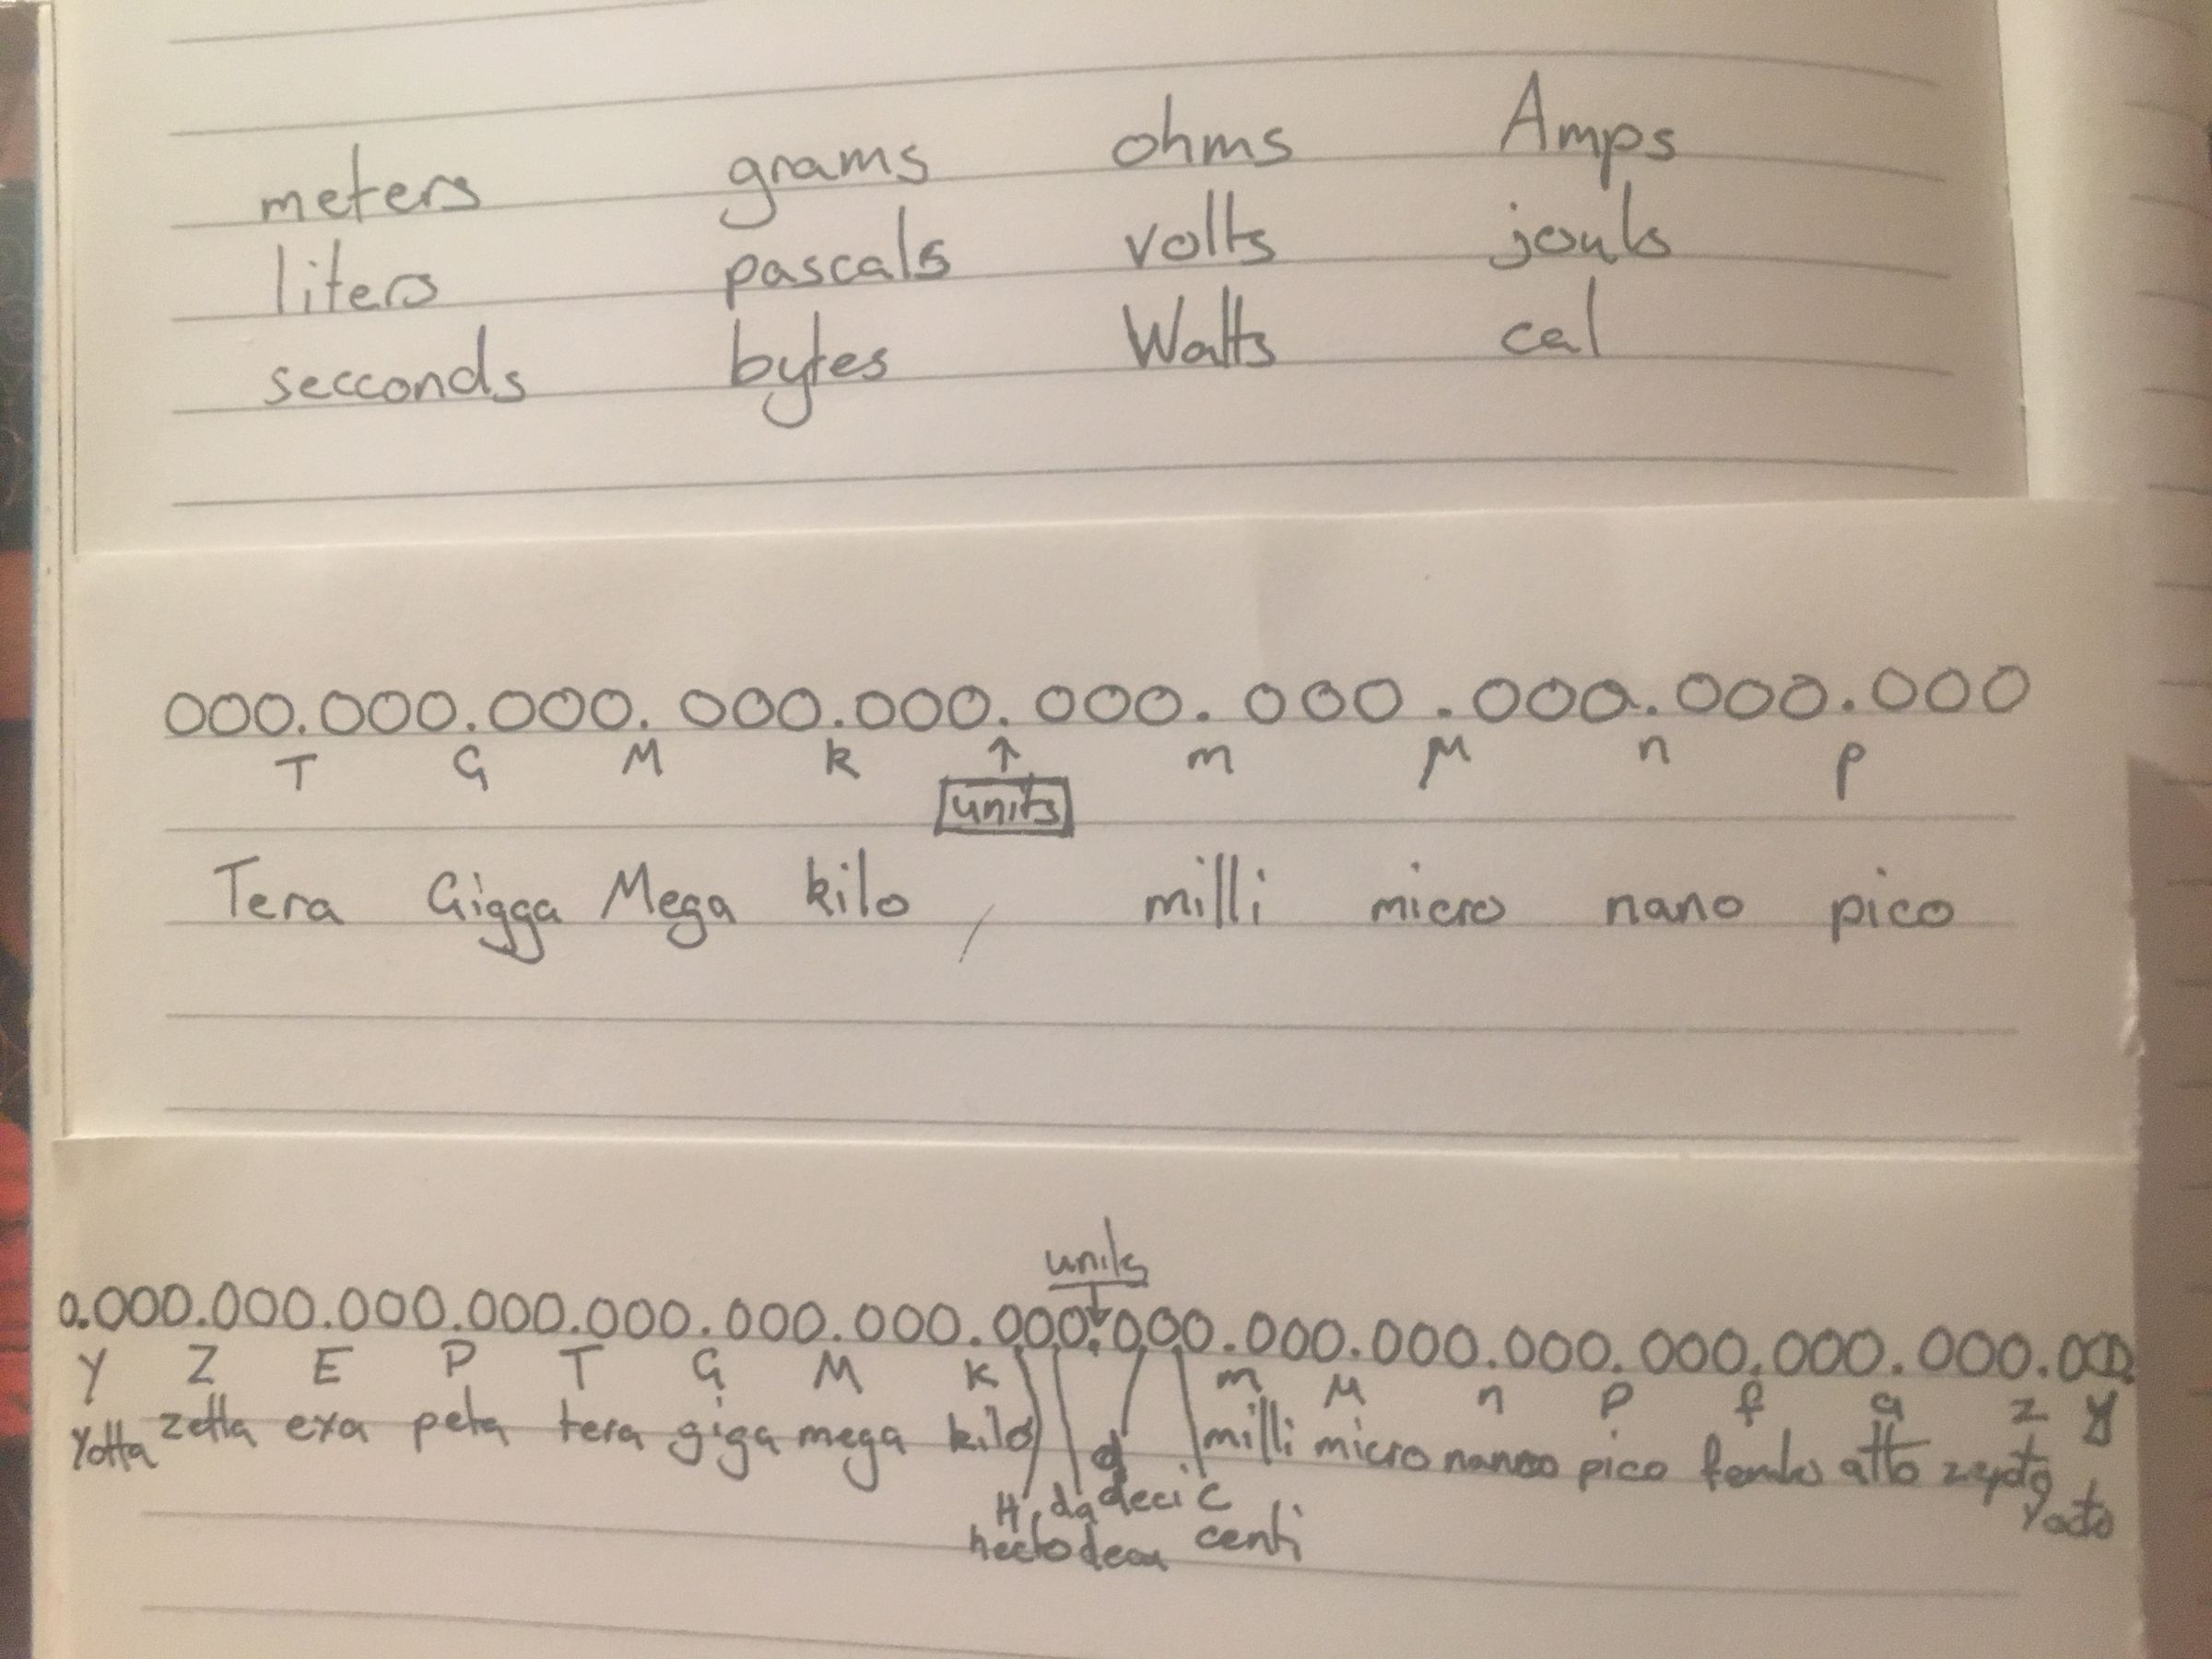 meters grams ohms Amps
liters pascals volts jouls
secconds bytes Watts cal
000.000.000.000.000.000.000.000.000.000
T G M k ↑ m μ n p
units
Tera Gigga Mega kilo , milli micro nano pico
units
0.000.000.000.000.000.000.000.000.000.000.000.000.000.000.000.000
Y Z E P T G M K m μ n p f a z y
Yotta zetta exa peta tera giga mega kilo d milli micro nano pico femto atto zepto
H da deci c yocto
hecto deca centi